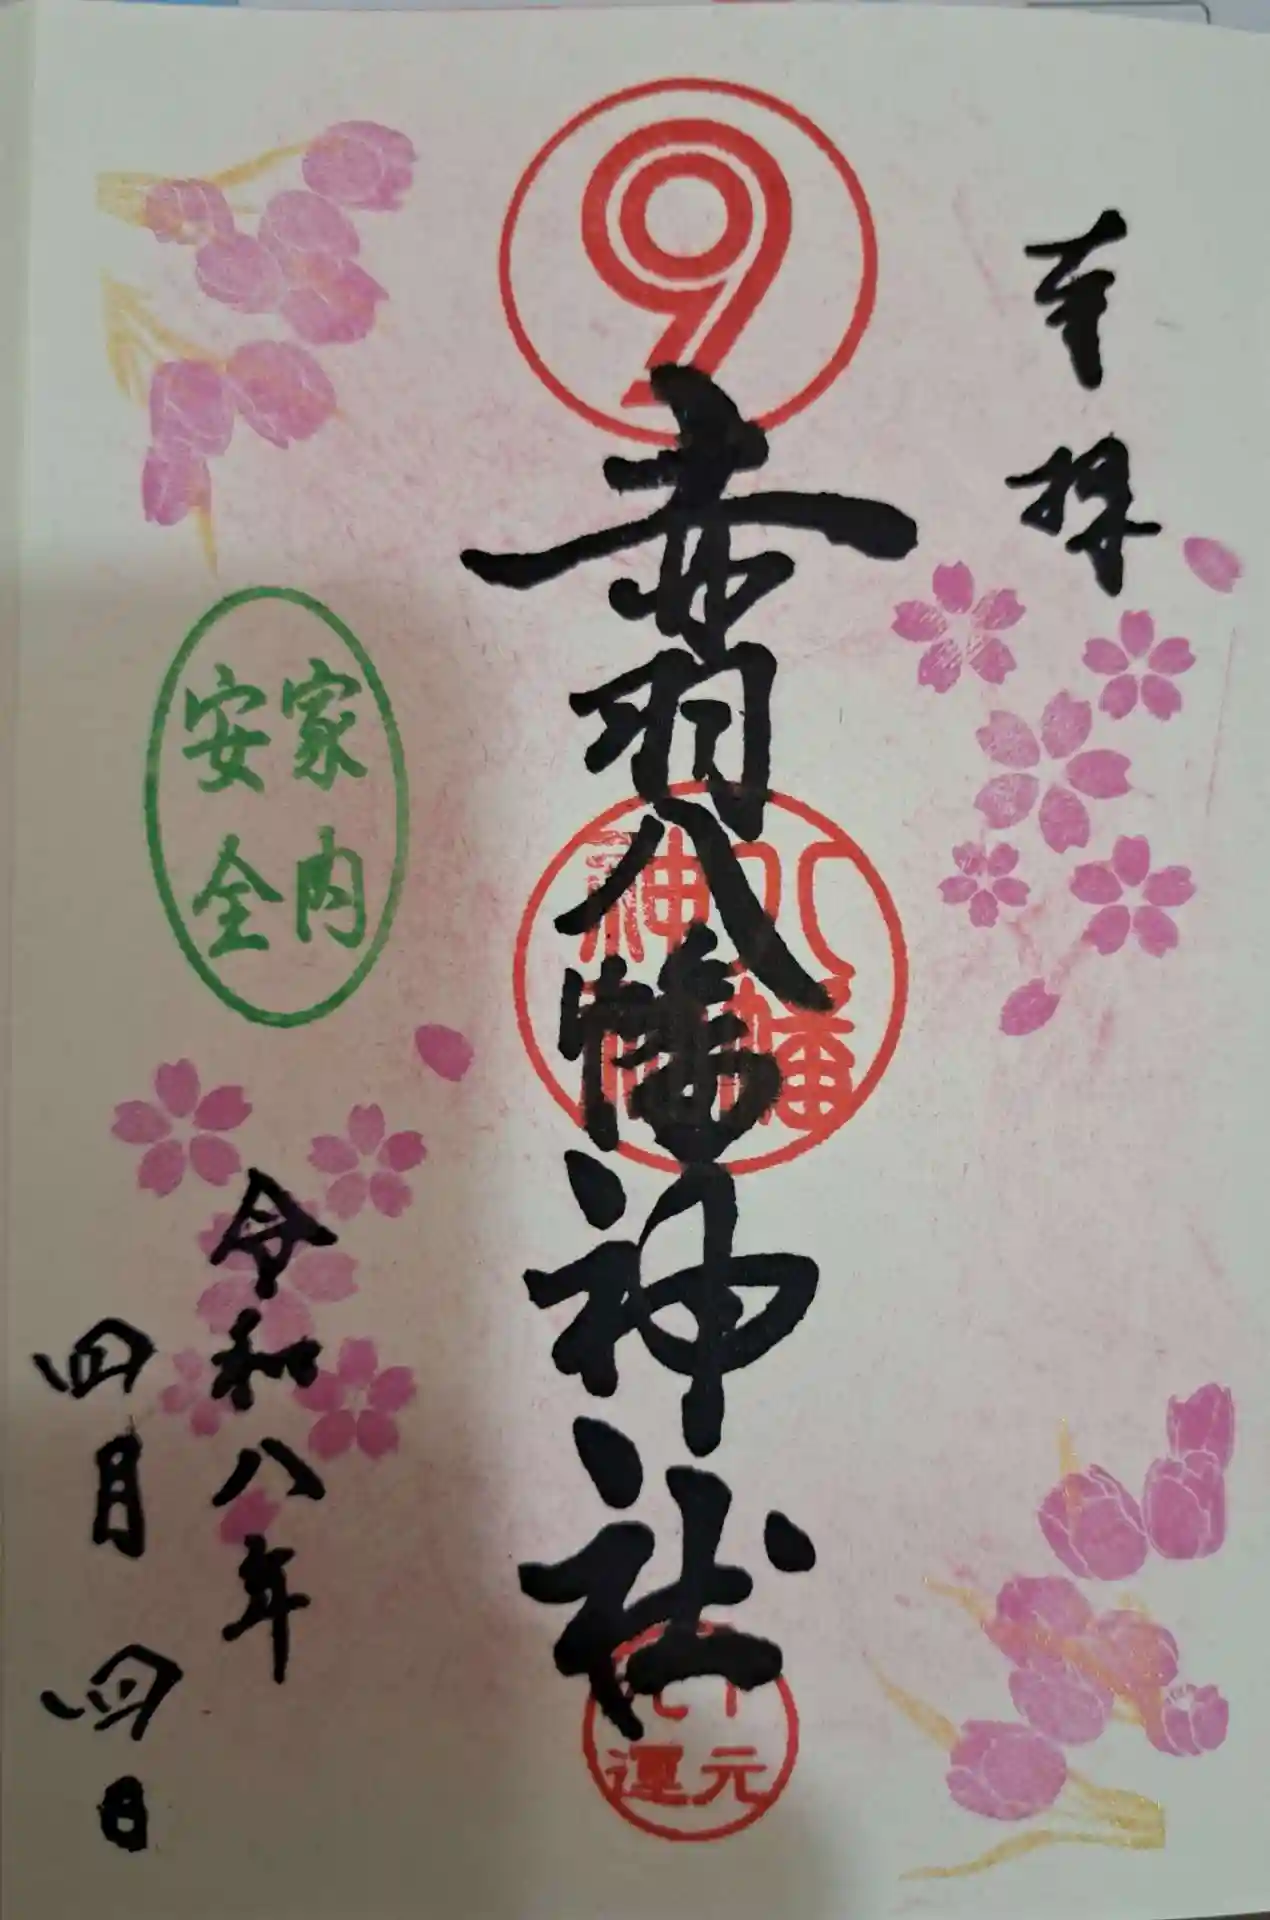 奉拝
9
赤羽八幡神社
八幡
神社
元
運
家内
安全
令和八年
四月四日